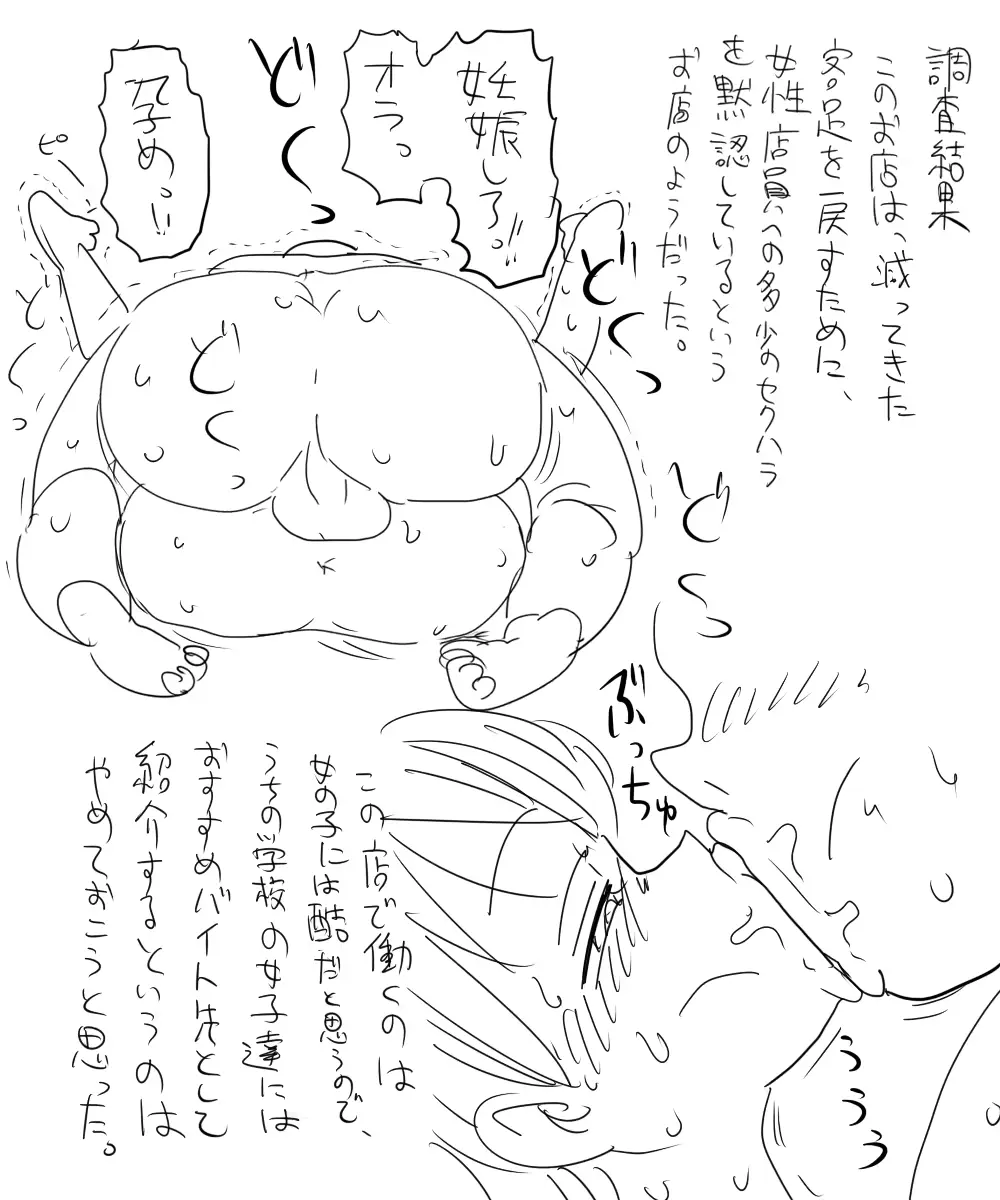 調査結果
このお店は、減ってきた
客足を戻すために、
女性店員への多少のセクハラ
を黙認しているという
お店のようだった。
妊娠しろっ!!
オラっ
ど
く
っ
ピー
ど
く
っ
ど
く
っ
ど
く
っ
ど
く
っ
ぶっちゅ
ううう
この店で働くのは
女の子には酷だと思うので、
うちの学校の女子達には
おすすめバイト先として
紹介するというのは
やめておこうと思った。